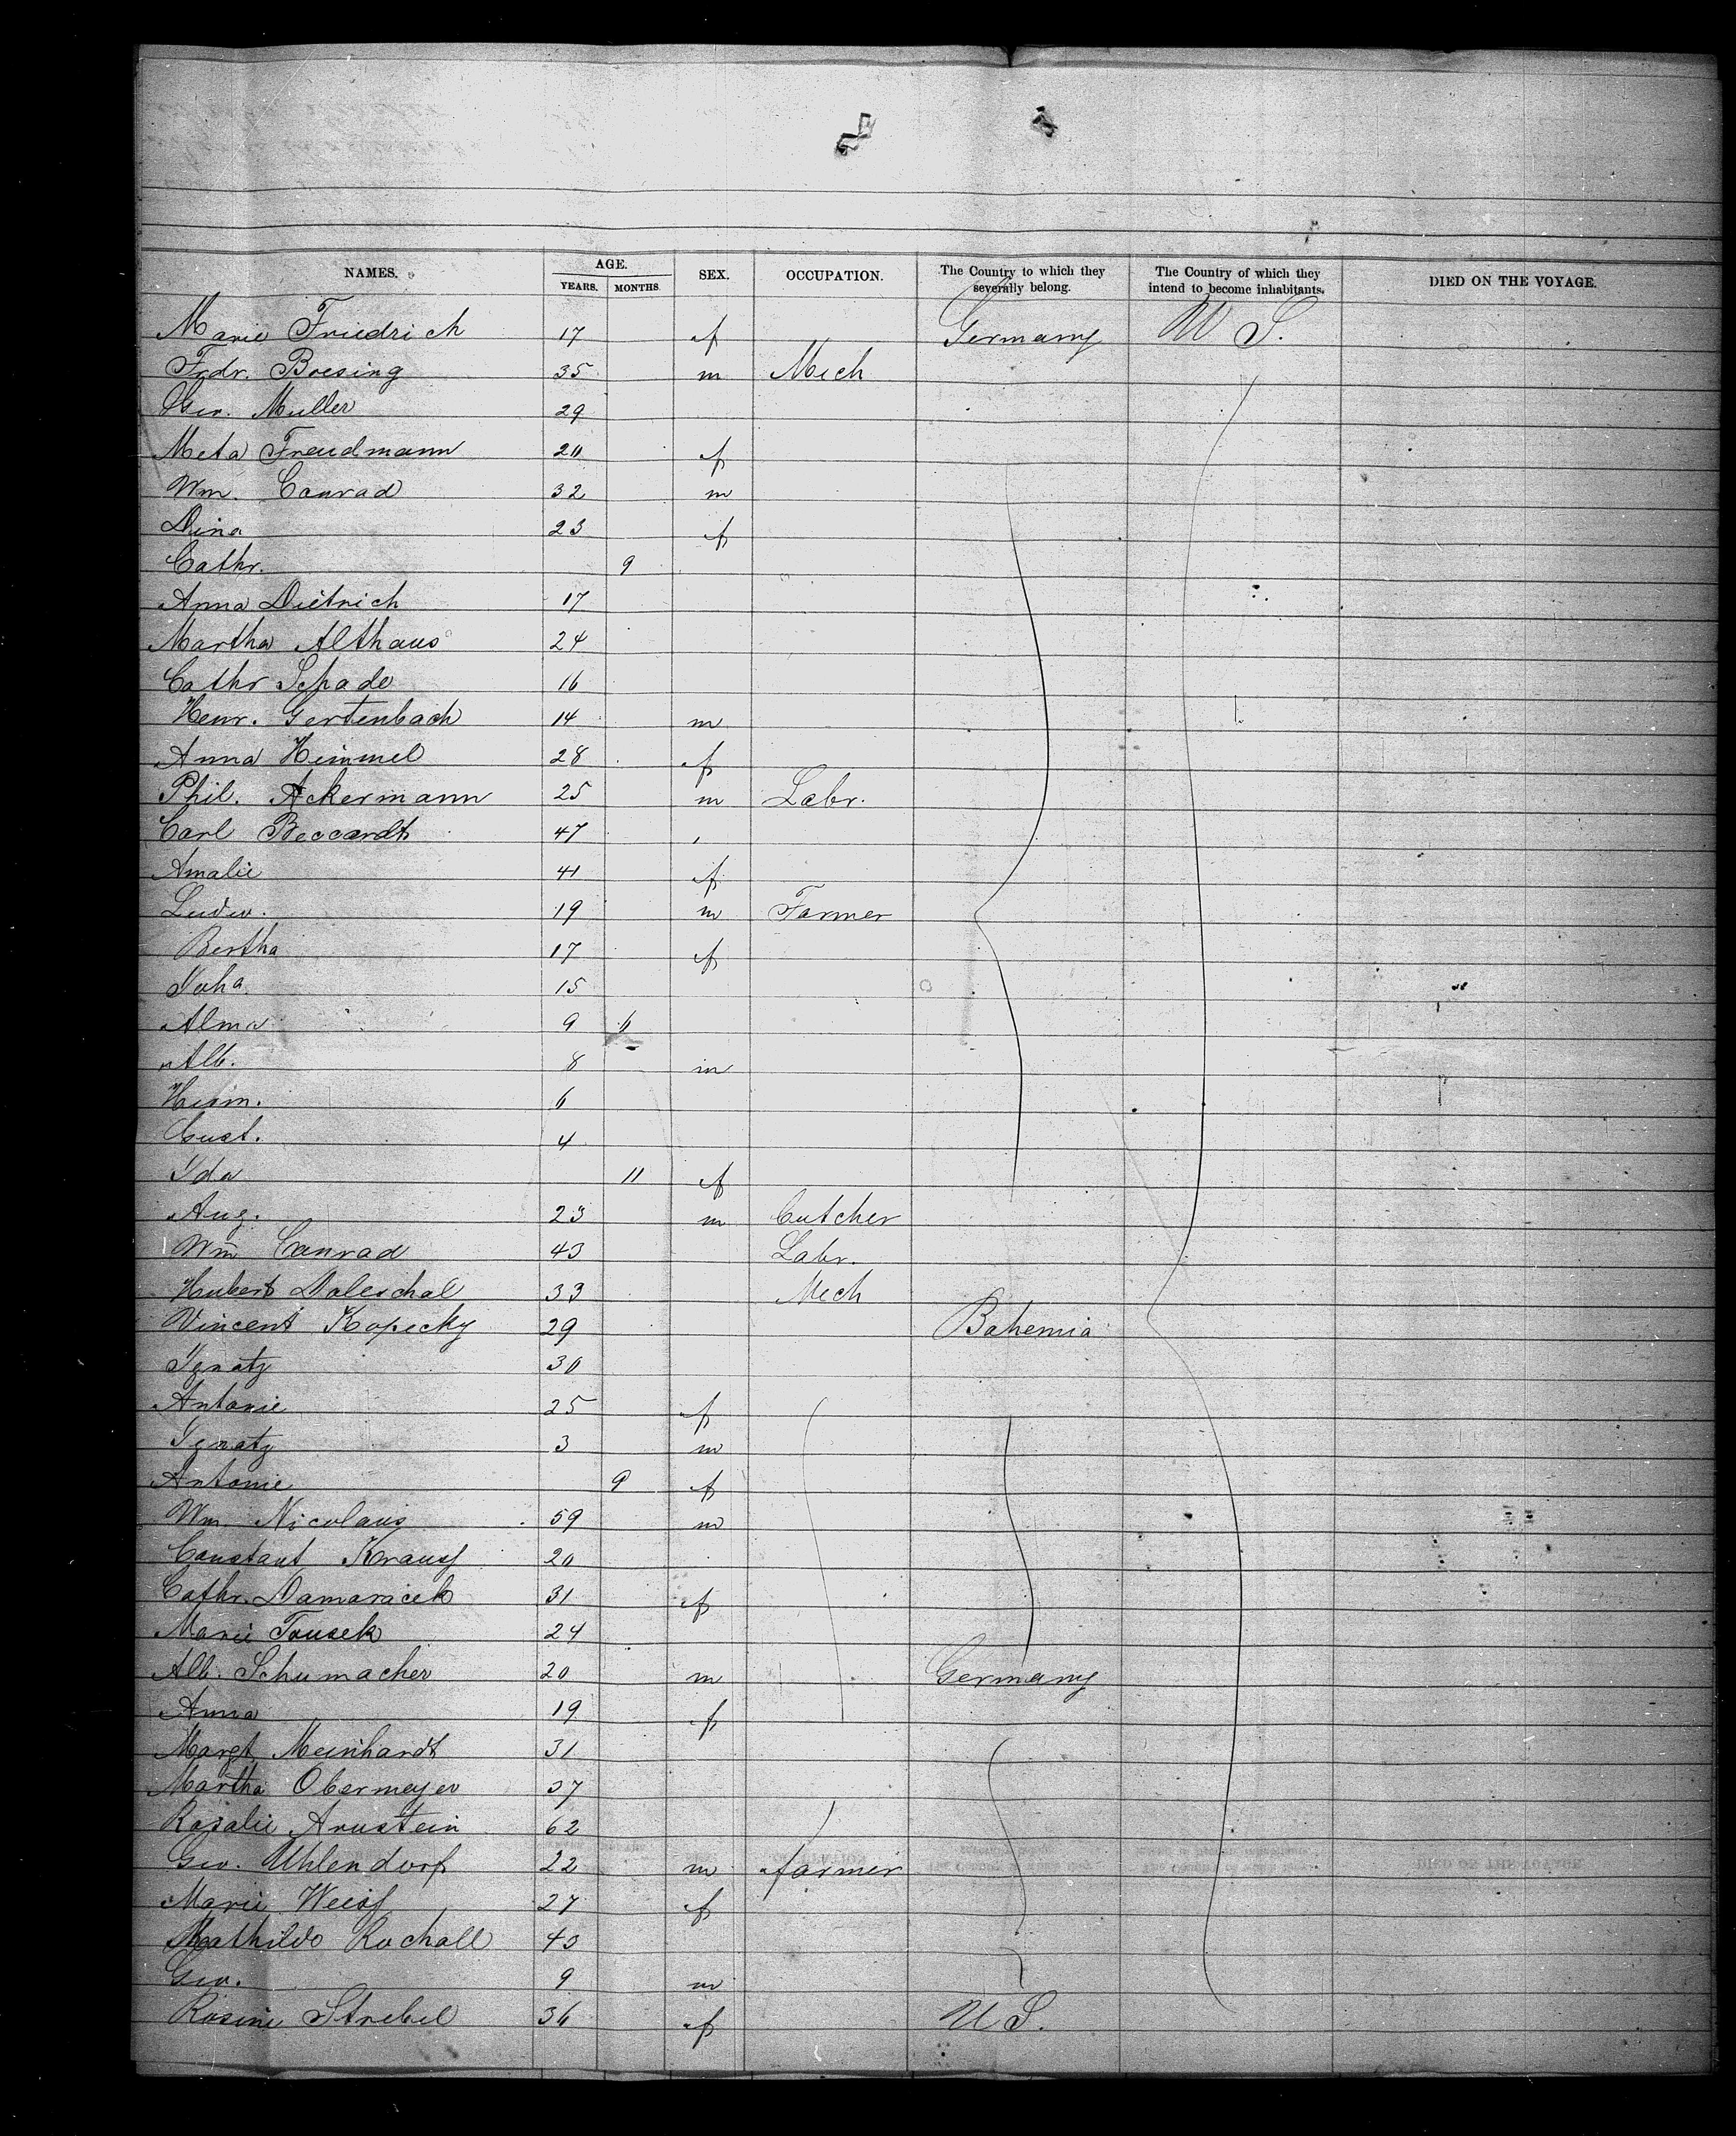 NAMES. AGE. YEARS. MONTHS. SEX. OCCUPATION. The Country to which they severally belong. The Country of which they intend to become inhabitants. DIED ON THE VOYAGE.
Marie Friedrich 17 f Germany U S.
Frdr. Boesing 35 m Mech
Geo. Muller 29
Meta Freudmann 20 f
Wm. Conrad 32 m
Dina 23 f
Cathr. 9
Anna Dietrich 17
Martha Althaus 24
Cathr Schade 16
Henr. Gertenbach 14 m
Anna Himmel 28 f
Phil. Ackermann 25 m Labr.
Carl Beccardt 47
Amalie 41 f
Ludw. 19 m Farmer
Bertha 17 f
Joha. 15
Alma 9 6
Alb. 8 m
Herm. 6
Gust. 4
Ida 11 f
Aug. 23 m Butcher
Wm Conrad 43 Labr.
Hubert Daleschal 33 Mech
Vincent Kopecky 29 Bohemia
Ignatz 30
Antonie 25 f
Ignatz 3 m
Antonie 9 f
Wm. Nicolaus 59 m
Constant Krauss 20
Cathr. Damaracek 31 f
Marie Tousek 24
Alb. Schumacher 20 m Germany
Anna 19 f
Margt. Meinhardt 31
Martha Obermeyer 37
Rosalie Arnstein 62
Geo. Uhlendorf 22 m farmer
Marie Weiss 27 f
Mathilde Rochall 43
Geo. 9 m
Rosine Strebel 36 f U S.